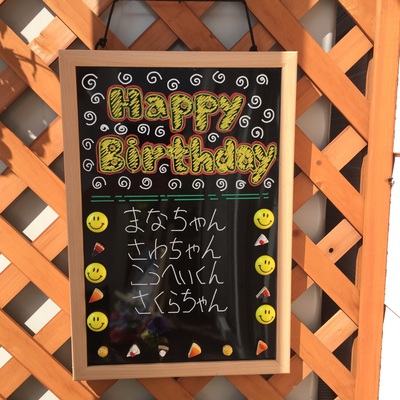 Happy
Birthday
まなちゃん
さわちゃん
こうへいくん
さくらちゃん